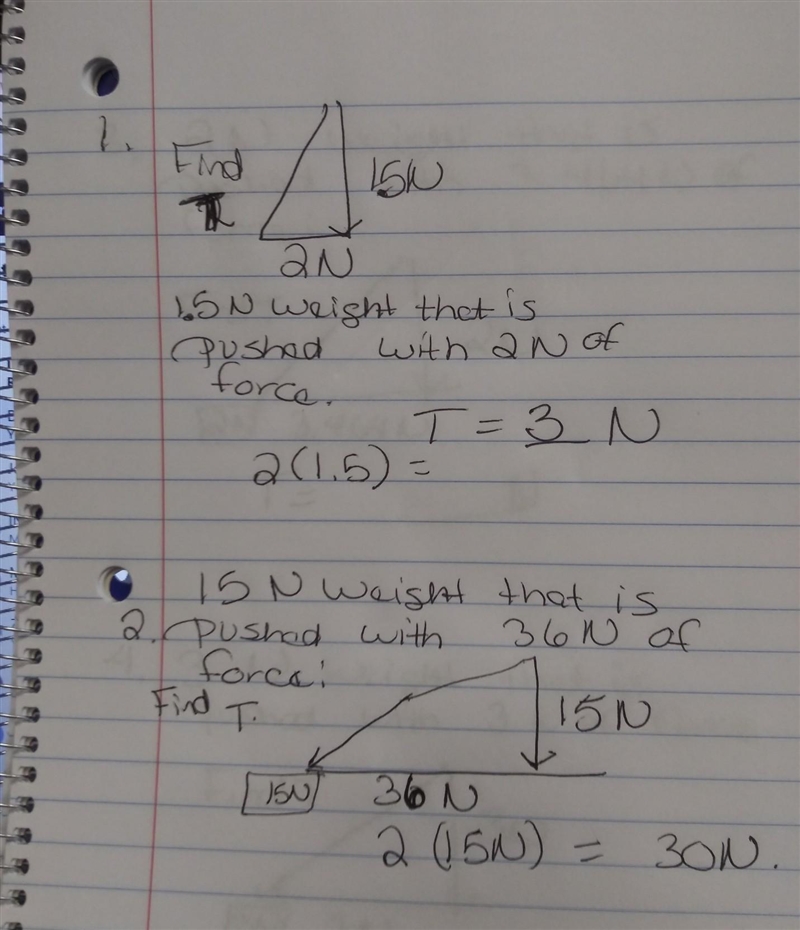 1.
Find
T
1.5N
2N
1.5N weight that is
pushed with 2N of
force.
T = 3 N
2(1.5) =
15N weight that is
2. pushed with 36N of
force:
Find T.
15N
15N 36N
2 (15N) = 30N.